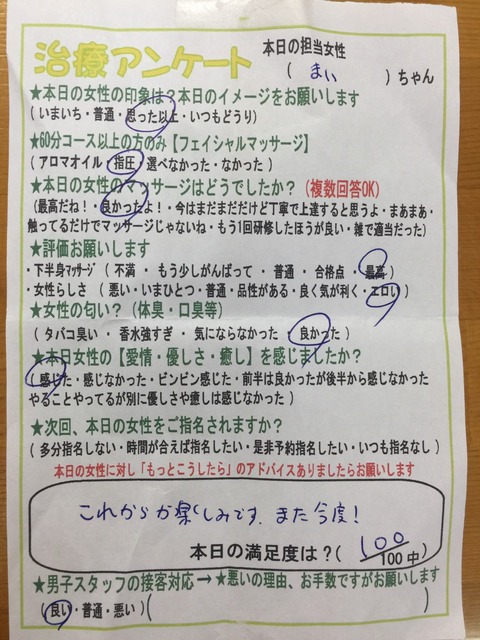 治療アンケート
本日の担当女性
( まい )ちゃん
★本日の女性の印象は？本日のイメージをお願いします
(いまいち・普通・思った以上・いつもどうり)
★60分コース以上の方のみ【フェイシャルマッサージ】
(アロマオイル・指圧・選べなかった・なかった)
★本日の女性のマッサージはどうでしたか？(複数回答OK)
(最高だね！・良かったよ！・今はまだまだだけど丁寧で上達すると思うよ・まあまあ・
触ってるだけでマッサージじゃないね・もう1回研修したほうが良い・雑で適当だった)
★評価お願いします
・下半身マッサージ (不満 ・ もう少しがんばって ・ 普通 ・ 合格点 ・ 最高)
・女性らしさ (悪い・いまひとつ・普通・品性がある・良く気が利く・エロい)
★女性の匂い？(体臭・口臭等)
(タバコ臭い ・ 香水強すぎ ・ 気にならなかった ・ 良かった)
★本日女性の【愛情・優しさ・癒し】を感じましたか？
(感じた・感じなかった・ビンビン感じた・前半は良かったが後半から感じなかった
やることやってるが別に優しさや癒しは感じなかった)
★次回、本日の女性をご指名されますか？
(多分指名しない・時間が合えば指名したい・是非予約指名したい・いつも指名なし)
本日の女性に対し「もっとこうしたら」のアドバイスありましたらお願いします
これからが楽しみです。また今度！
本日の満足度は？( 100/100中)
★男子スタッフの接客対応→★悪いの理由、お手数ですがお願いします
(良い・普通・悪い)( )